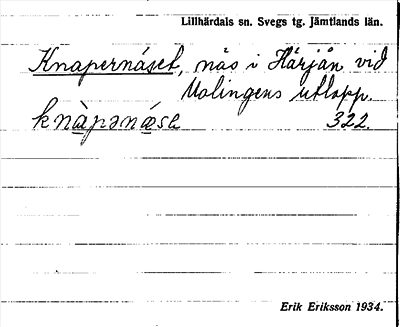 Lillhärdals sn. Svegs tg. Jämtlands län.
Knapernäset, näs i Härjån vid
Malingens utlopp.
knàpənǽsə 322.
Erik Eriksson 1934.